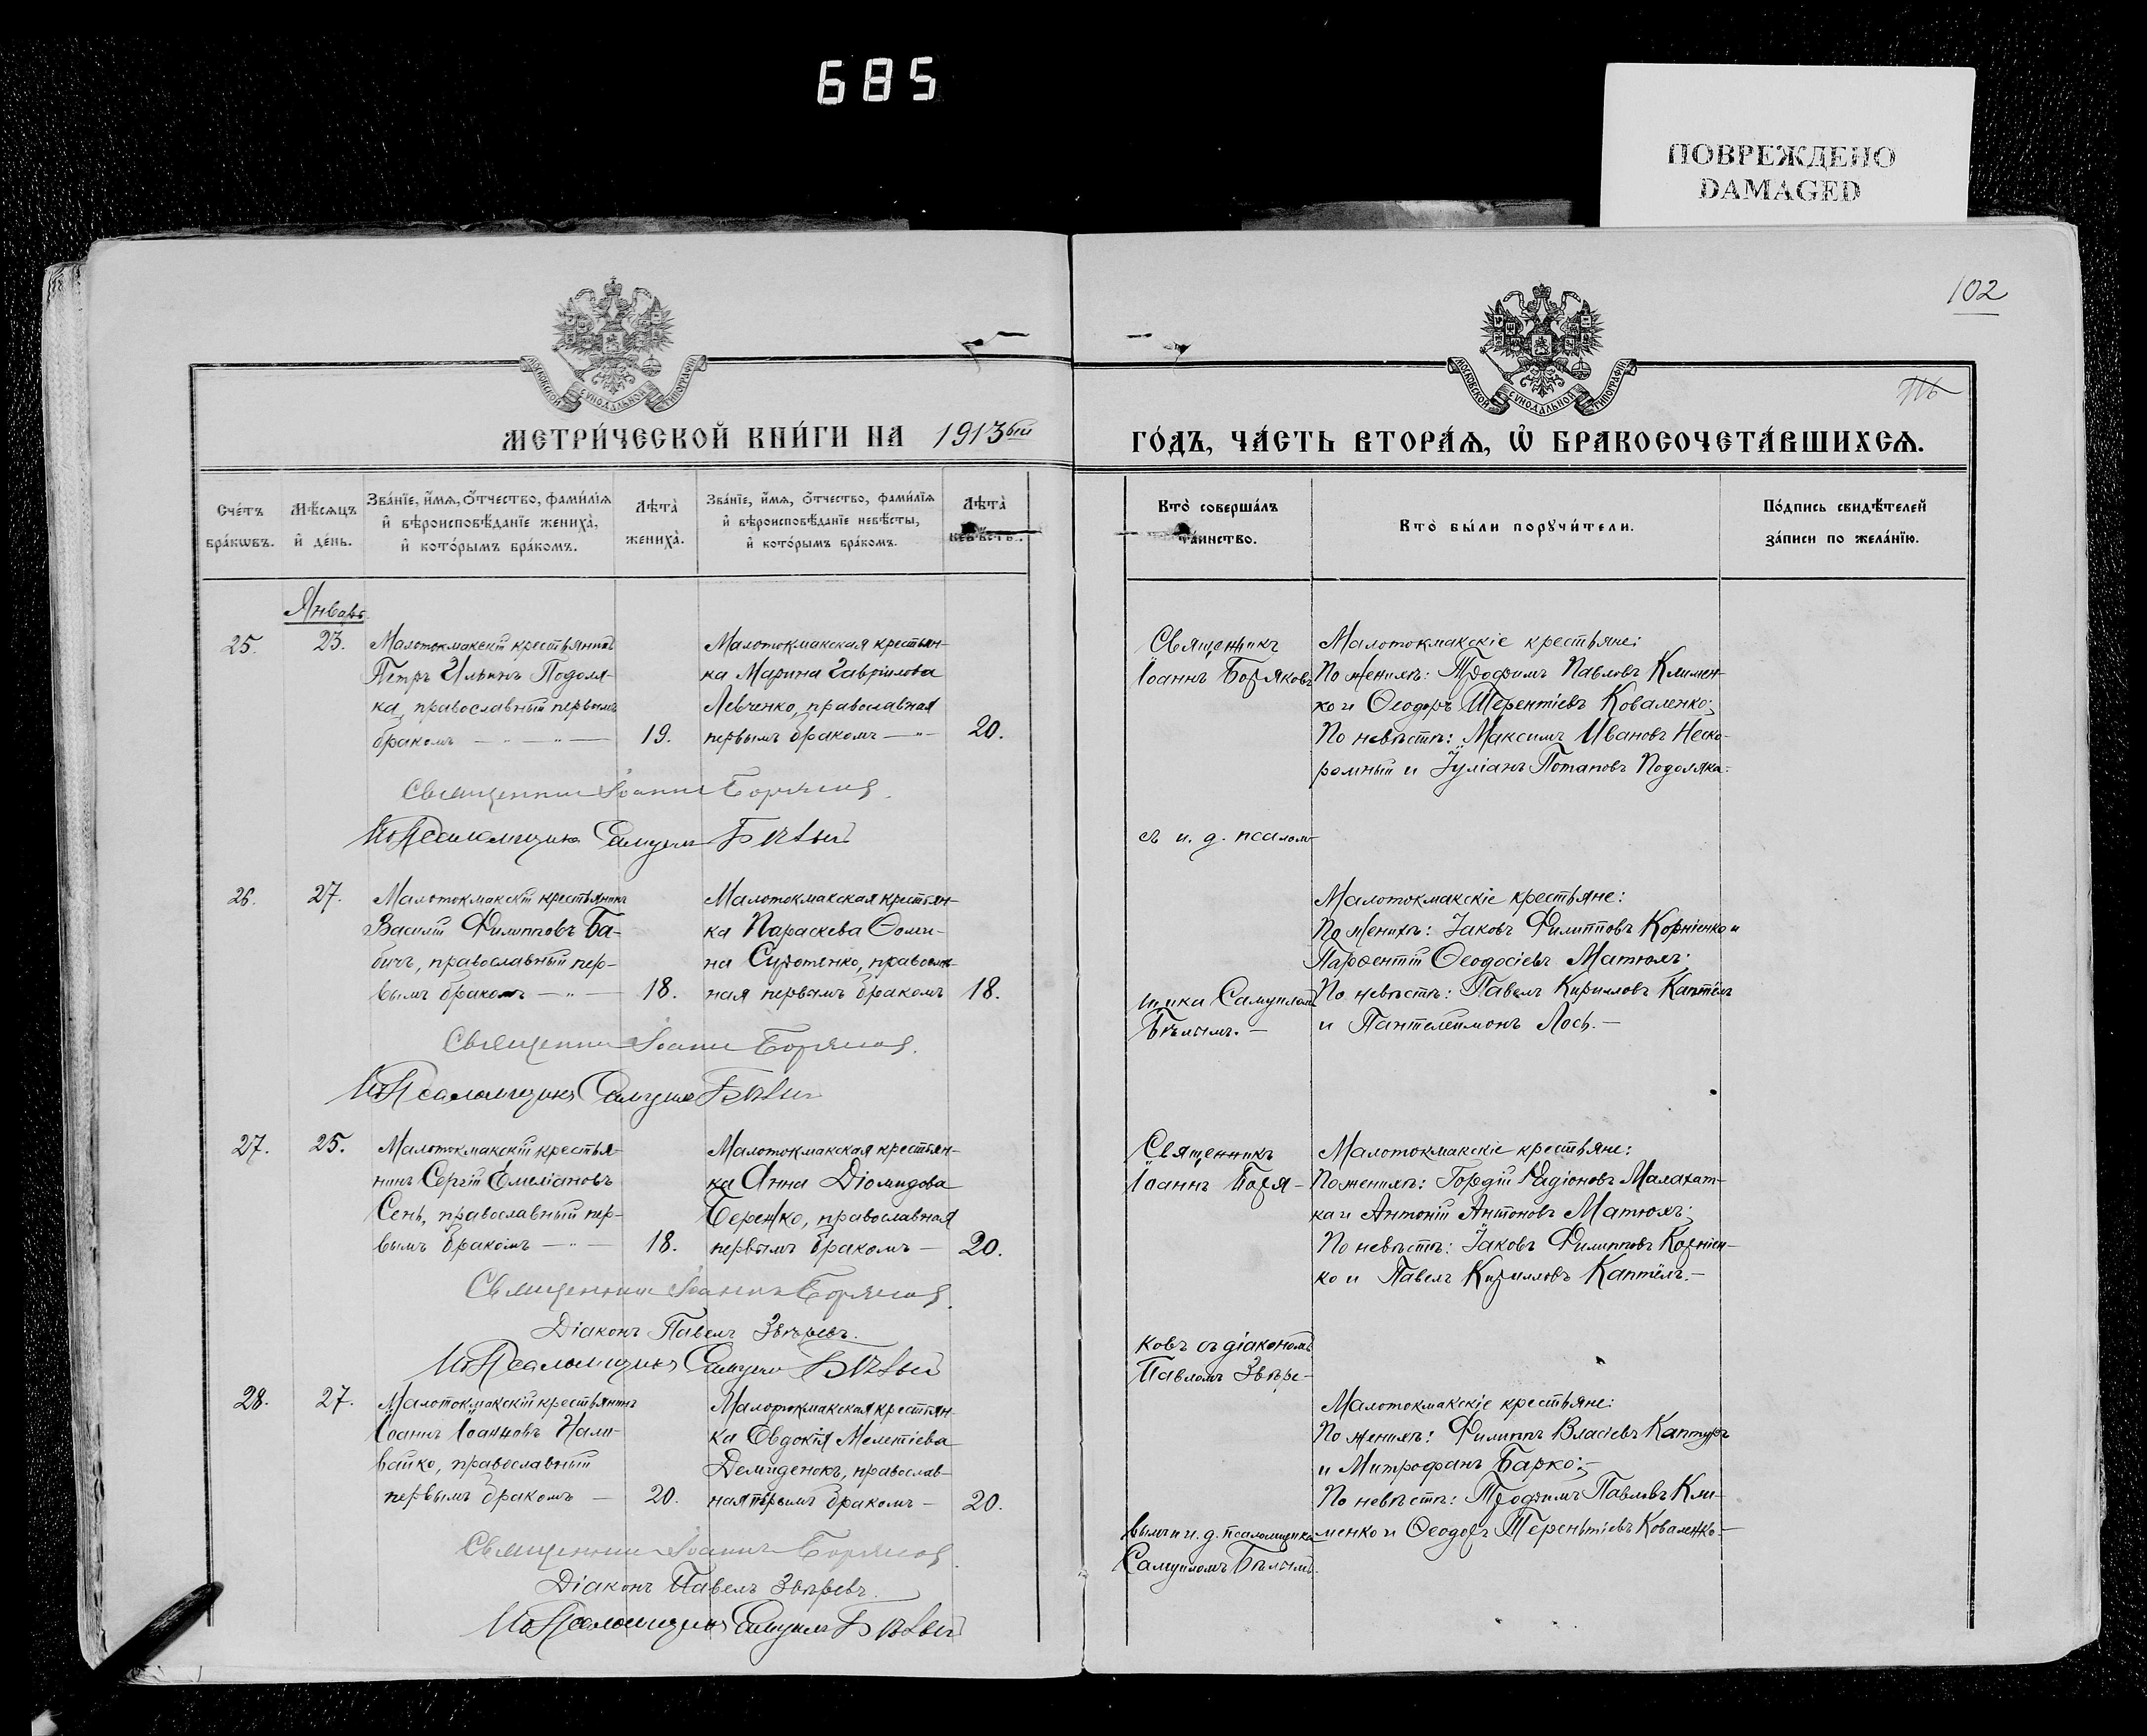 685
ПОВРЕЖДЕНО
DAMAGED
102
МОСКОВСКОЙ СѴНОДАЛЬНОЙ ТИПОГРАФІИ
МОСКОВСКОЙ СѴНОДАЛЬНОЙ ТИПОГРАФІИ
МЕТРИ́ЧЕСКОЙ КНИ́ГИ НА 1913ый
ГО́ДЪ, ЧА́СТЬ ВТОРА́Ѧ, Ѡ҆ БРАКОСОЧЕТА́ВШИХСѦ.
Сче́тъ бра́кѡвъ.
Мѣ́сѧцъ и҆ де́нь.
Зва́нїе, и҆́мѧ, ѻ҆́тчество, фами́лїѧ
и҆ вѣроисповѣ́данїе жениха̀,
и҆ кото́рымъ бра́комъ.
Лѣта̀ жениха̀.
Зва́нїе, и҆́мѧ, ѻ҆́тчество, фами́лїѧ
и҆ вѣроисповѣ́данїе невѣ́сты,
и҆ кото́рымъ бра́комъ.
Лѣта̀ невѣ́сты.
Кто̀ соверша́лъ та́инство.
Кто̀ бы́ли порꙋчи́тели.
По́дпись свидѣ́телей
за́писи по жела́нїю.
Январь
25. 23. Малотокмакскій крестьянинъ
Петръ Ильинъ Подоля-
ка, православный первымъ
бракомъ — " — " — 19.
Малотокмакская крестьян-
ка Марина Гавріилова
Левченко, православная
первымъ бракомъ — " — 20.
Священникъ
Іоаннъ Боряковъ
Малотокмакскіе крестьяне:
По женихѣ: Трофимъ Павловъ Климен-
ко и Ѳеодоръ Терентіевъ Коваленко;
По невѣстѣ: Максимъ Ивановъ Неско-
ромный и Іуліанъ Потаповъ Подоляка.
Священникъ Іоаннъ Боряковъ.
И.о. Псаломщика Самуилъ Бѣлый
съ и. д. псалом-
26. 27. Малотокмакскій крестьянинъ
Василій Филипповъ Ба-
бичъ, православный пер-
вымъ бракомъ — " — 18.
Малотокмакская крестьян-
ка Параскева Ѳоми-
на Сиротенко, православ-
ная первымъ бракомъ 18.
щика Самуиломъ
Бѣлымъ. —
Малотокмакскіе крестьяне:
По женихѣ: Іаковъ Филипповъ Корніенко и
Парѳентій Ѳеодосіевъ Матюхъ;
По невѣстѣ: Павелъ Кирилловъ Каптёлъ
и Пантелеимонъ Лось. —
Священникъ Іоаннъ Боряковъ.
И.о. Псаломщика Самуилъ Бѣлый
27. 25. Малотокмакскій крестья-
нинъ Сергій Емеліановъ
Сень, православный пер-
вымъ бракомъ — " — 18.
Малотокмакская крестьян-
ка Анна Діомидова
Бережко, православная
первымъ бракомъ — 20.
Священникъ
Іоаннъ Боря-
Малотокмакскіе крестьяне:
По женихѣ: Гордій Радіоновъ Малахат-
ка и Антоній Антоновъ Матюхъ;
По невѣстѣ: Іаковъ Филипповъ Корніен-
ко и Павелъ Кирилловъ Каптёлъ. —
Священникъ Іоаннъ Боряковъ.
Діаконъ Павелъ Звѣревъ.
И.о. Псаломщика Самуилъ Бѣлый
ковъ съ діакономъ
Павломъ Звѣре-
28. 27. Малотокмакскій крестьянинъ
Іоаннъ Іоанновъ Нали-
вайко, православный
первымъ бракомъ — 20.
Малотокмакская крестьян-
ка Евдокія Мелетіева
Демиденокъ, православ-
ная первымъ бракомъ — 20.
вымъ и и. д. псаломщика
Самуиломъ Бѣлымъ.
Малотокмакскіе крестьяне:
По женихѣ: Филиппъ Власіевъ Каптуръ
и Митрофанъ Барко; —
По невѣстѣ: Трофимъ Павловъ Кли-
менко и Ѳеодоръ Терентіевъ Коваленко —
Священникъ Іоаннъ Боряковъ.
Діаконъ Павелъ Звѣревъ.
И.о. Псаломщика Самуилъ Бѣлый